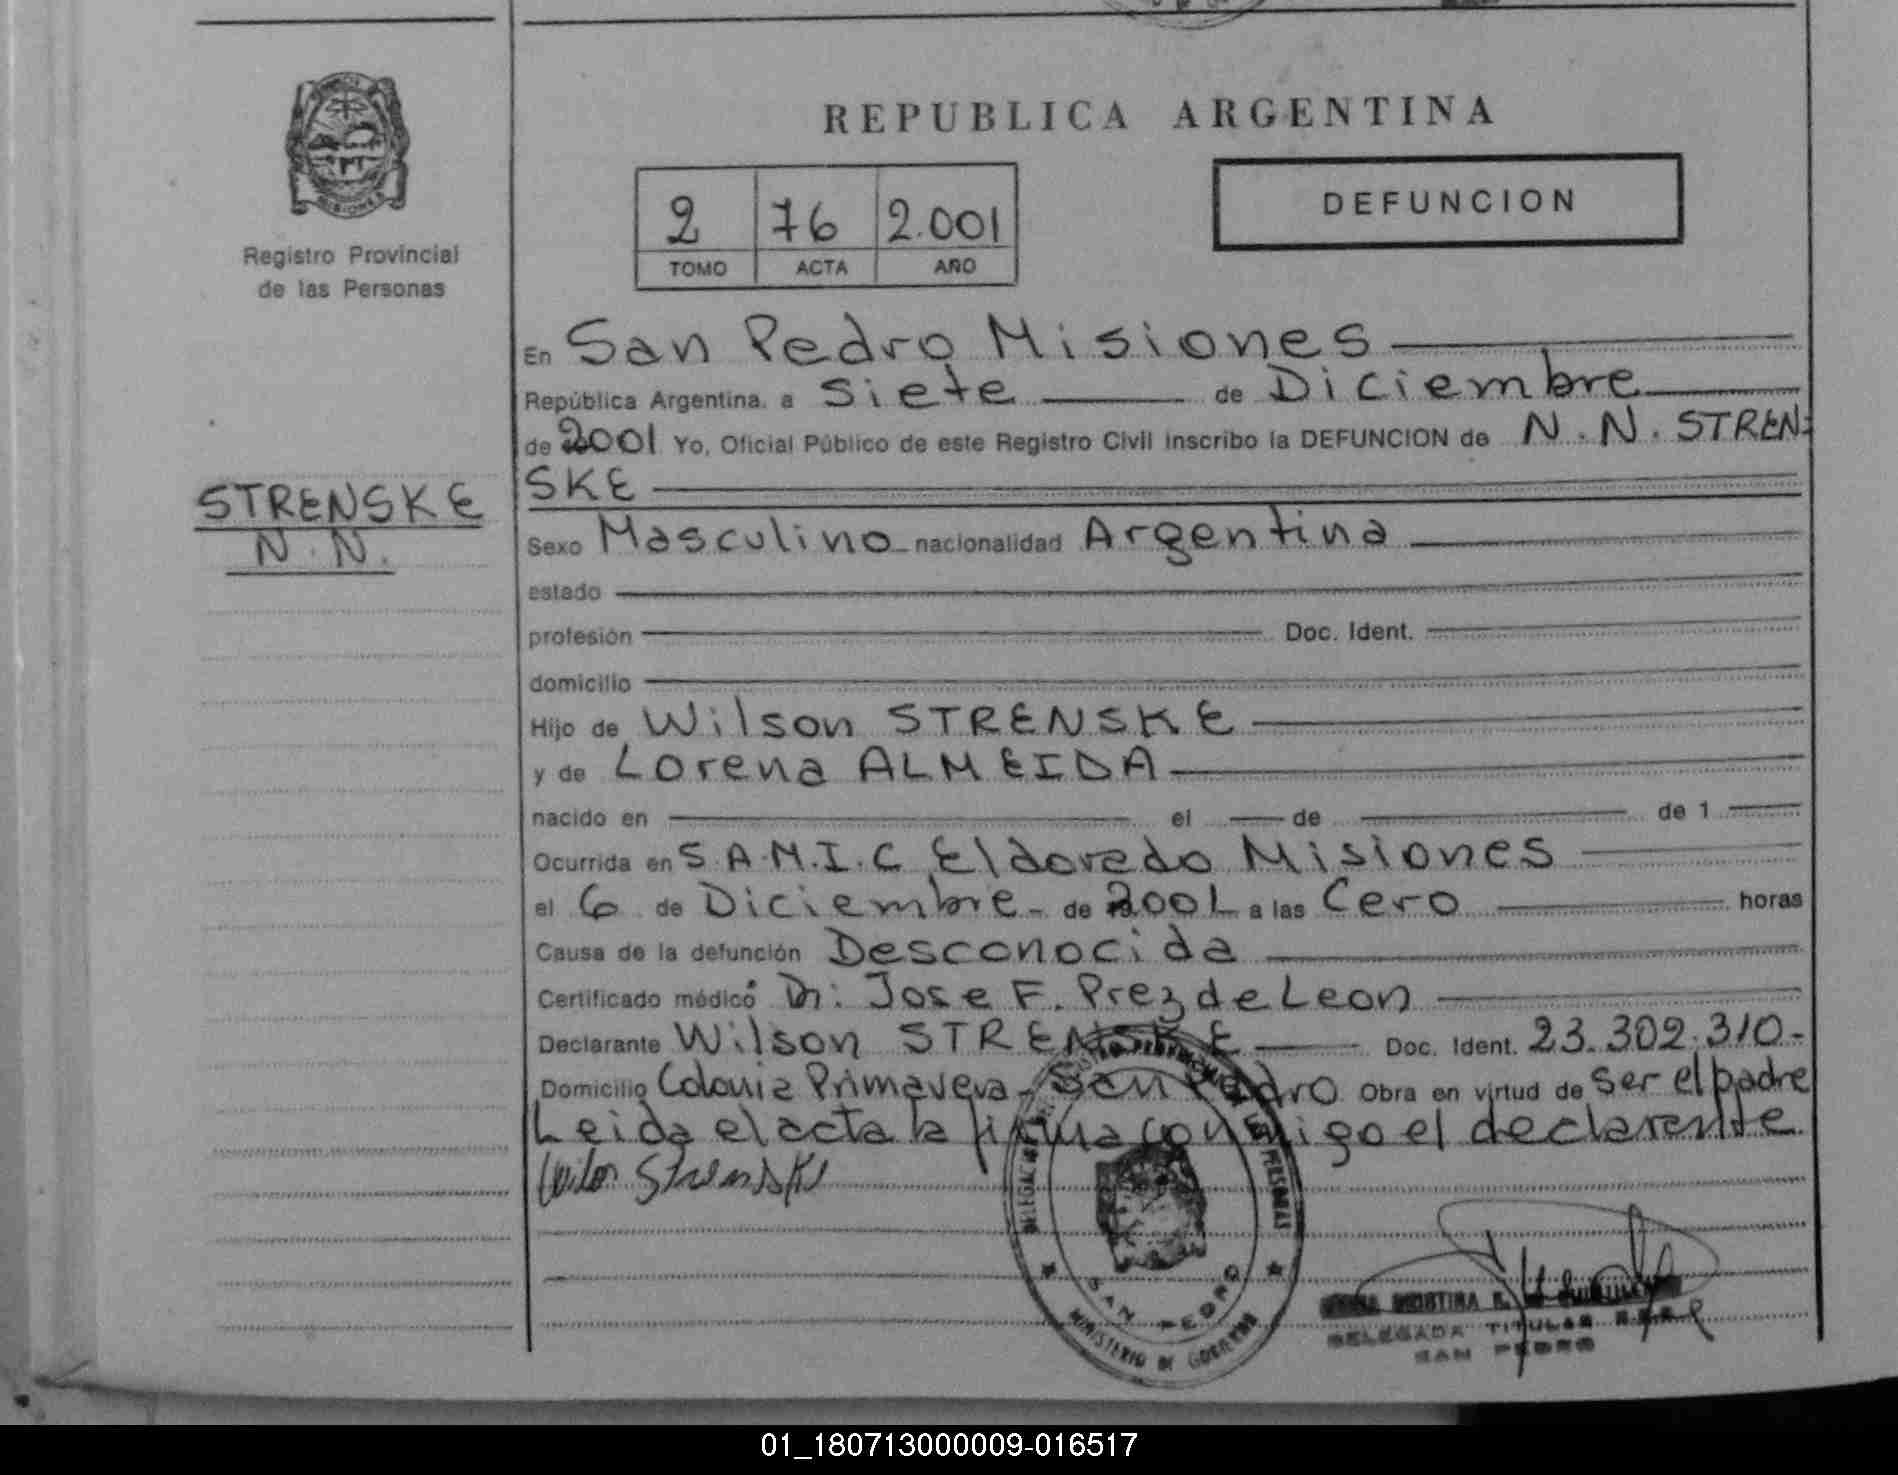 REPUBLICA ARGENTINA
MISIONES
Registro Provincial
de las Personas
2 76 2.001
TOMO ACTA AÑO
DEFUNCION
En San Pedro Misiones
República Argentina, a Siete de Diciembre
de 2001 Yo, Oficial Público de este Registro Civil inscribo la DEFUNCION de N.N. STREN=
SKE
STRENSKE
N.N.
Sexo Masculino nacionalidad Argentina
estado
profesión Doc. Ident.
domicilio
Hijo de Wilson STRENSKE
y de Lorena ALMEIDA
nacido en el de de 1
Ocurrida en S.A.M.I.C Eldorado Misiones
el 6 de Diciembre de 2001 a las Cero horas
Causa de la defunción Desconocida
Certificado médico Dr: Jose F. Prez de Leon
Declarante Wilson STRENSKE Doc. Ident. 23.302.310-
Domicilio Colonia Primavera - San Pedro Obra en virtud de ser el padre
Leida el acta la firma conmigo el declarente
Wilson Strenske
DE LAS PERSONAS
SAN PEDRO
MINISTERIO DE GOBIERNO
DELEGADA TITULAR
SAN PEDRO
01_180713000009-016517